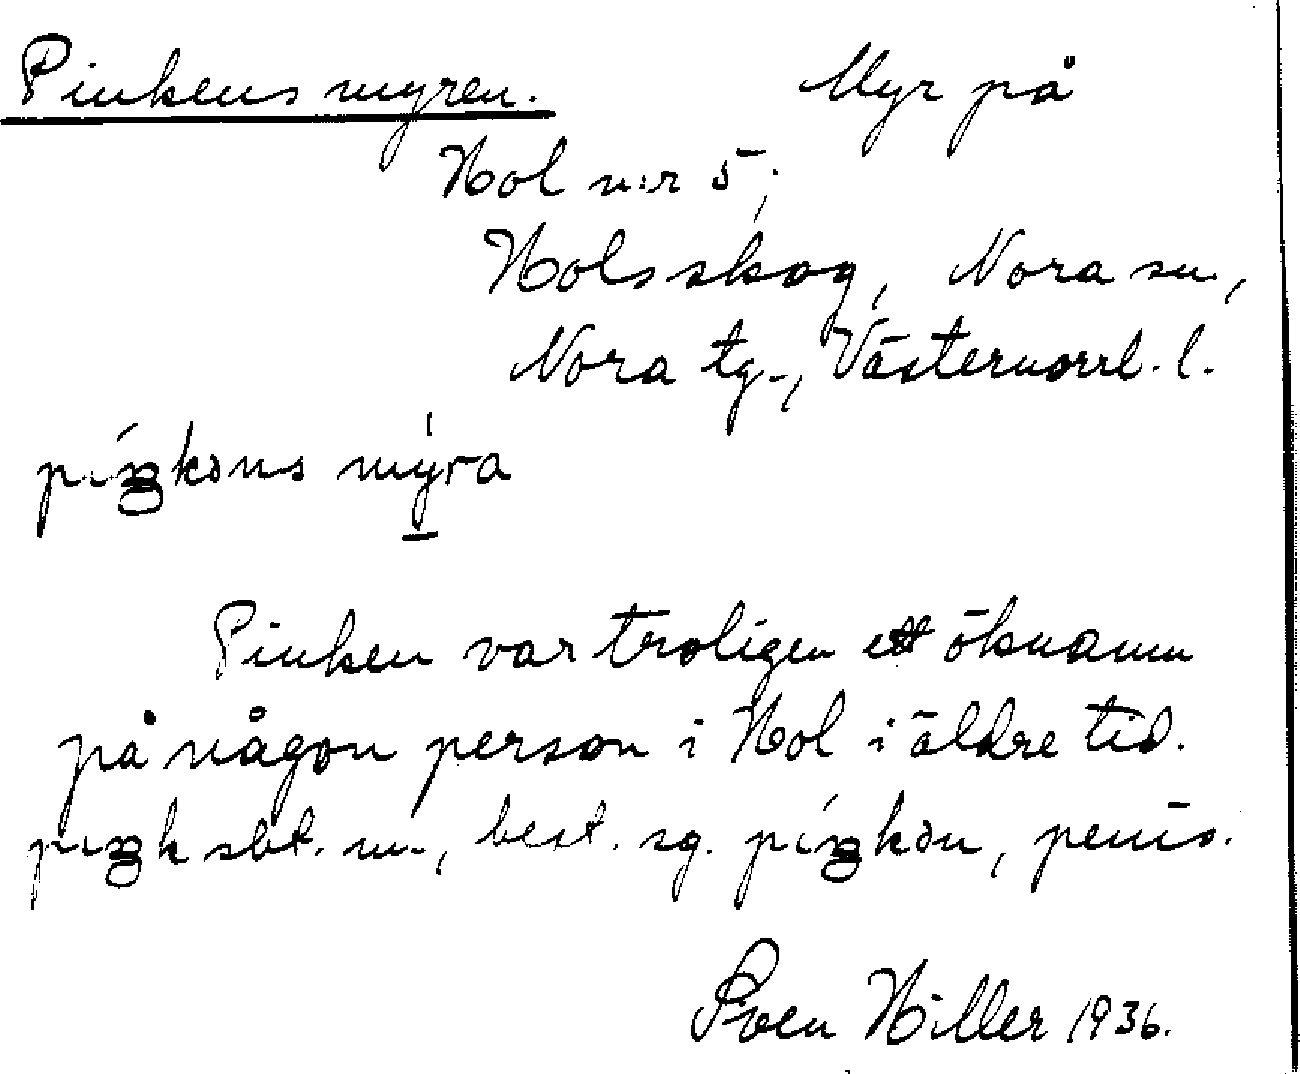 Pinkens myren. Myr på
Hol n:r 5,
Hols skog, Nora sn.,
Nora tg., Västernorrl. l.
píŋkəns mýra
Pinken var troligen ett öknamn
på någon person i Hol i äldre tid.
piŋk sbt. m., best. sg. píŋkən, penis.
Sven Hiller 1936.